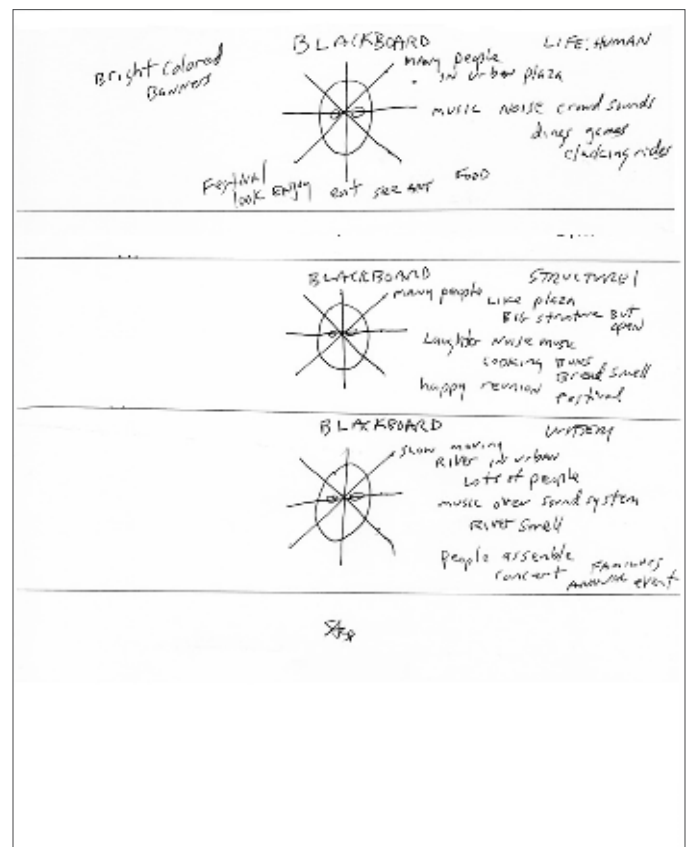 BLACKBOARD
LIFE: HUMAN
Bright Colored
Banners
many people
in urban plaza
music Noise crowd sounds
dings games
clacking rides
Festival
look Enjoy eat see art Food
BLACKBOARD
STRUCTURE/
many people
Like plaza
Big structure But
open
Laughter Noise music
cooking
Bread smell
happy reunion
Festival
BLACKBOARD
slow moving
River in urban
Lots of people
music over sound system
River smell
People assemble
concert
Families
Annual event